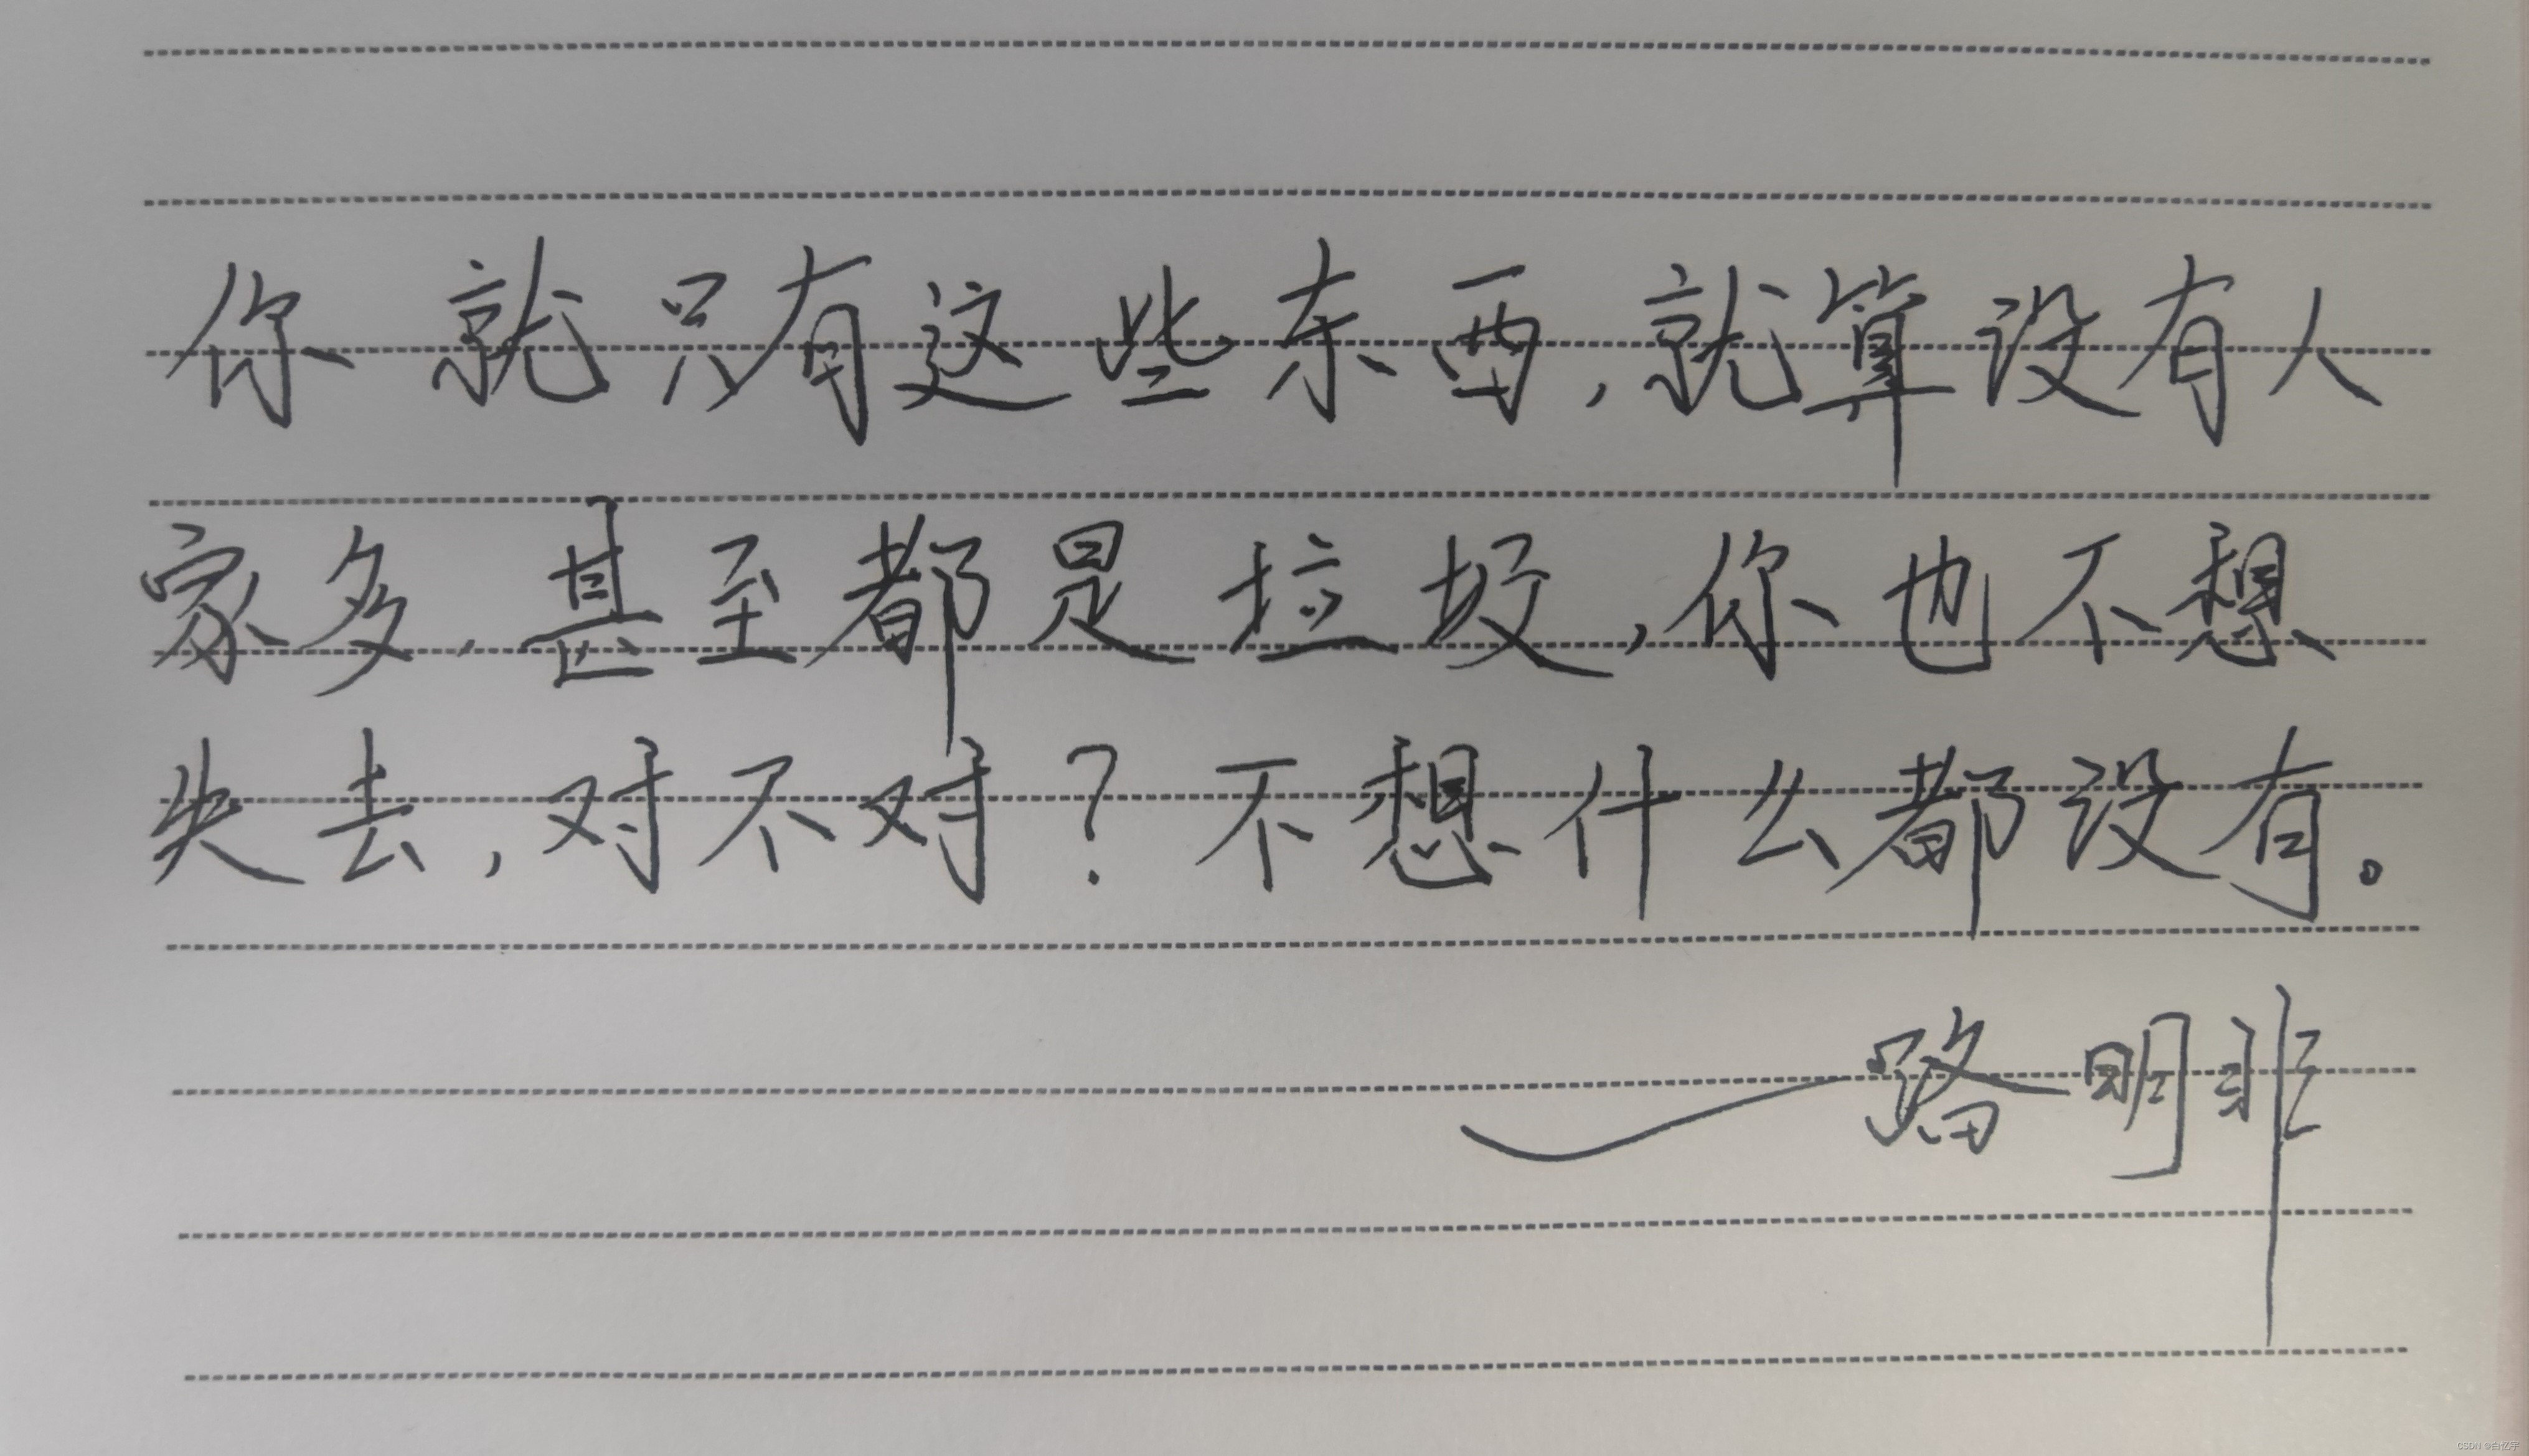 你就只有这些东西,就算没有人
家多,甚至都是垃圾,你也不想
失去,对不对?不想什么都没有。
——路明非
CSDN @白忆宇